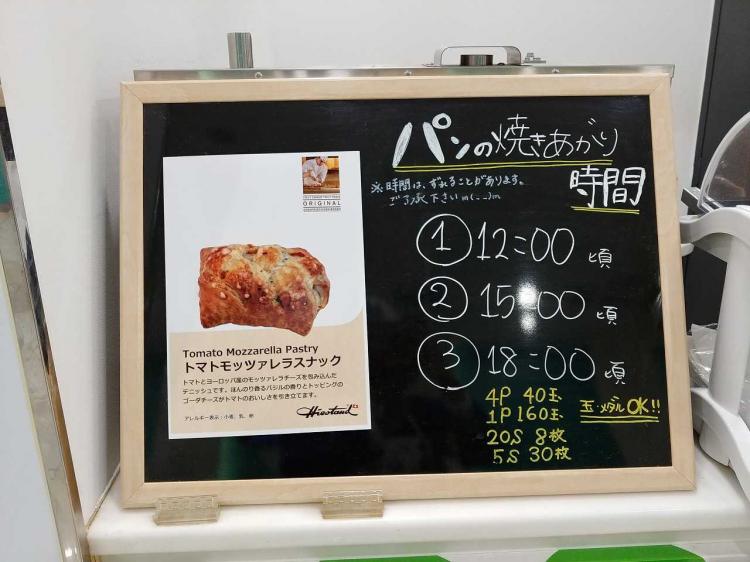 パンの焼きあがり
時間
※時間は、ずれることがあります。
ご了承下さいm(__)m
① 12:00 頃
② 15:00 頃
③ 18:00 頃
4P 40玉
1P 160玉
20S 8枚
5S 30枚
玉・メダルOK!!
ORIGINAL
Tomato Mozzarella Pastry
トマトモッツァレラスナック
トマトとヨーロッパ産のモッツァレラチーズを包み込んだ
デニッシュです。ほんのり香るバジルの香りとトッピングの
ゴーダチーズがトマトのおいしさを引き立てます。
アレルギー表示:小麦、乳、卵
Hiestand